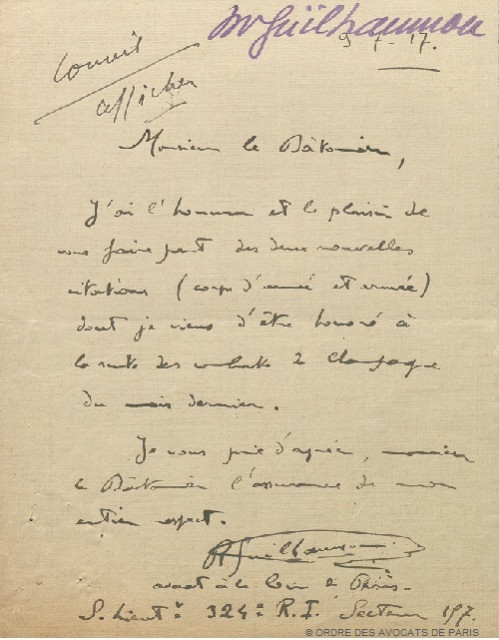 Mr Guilhaumon
9-7-17.
Conseil
afficher
Monsieur le Bâtonnier,
J'ai l'honneur et le plaisir de
vous faire part des deux nouvelles
citations (corps d'armée et armée)
dont je viens d'être honoré à
la suite des combats de Champagne
du mois dernier.
Je vous prie d'agréer, monsieur
le Bâtonnier l'assurance de mon
entier respect.
Guilhaumon
avocat à la Cour de Paris.
S. Lieutt 324e R.I. Secteur 197.
© ORDRE DES AVOCATS DE PARIS